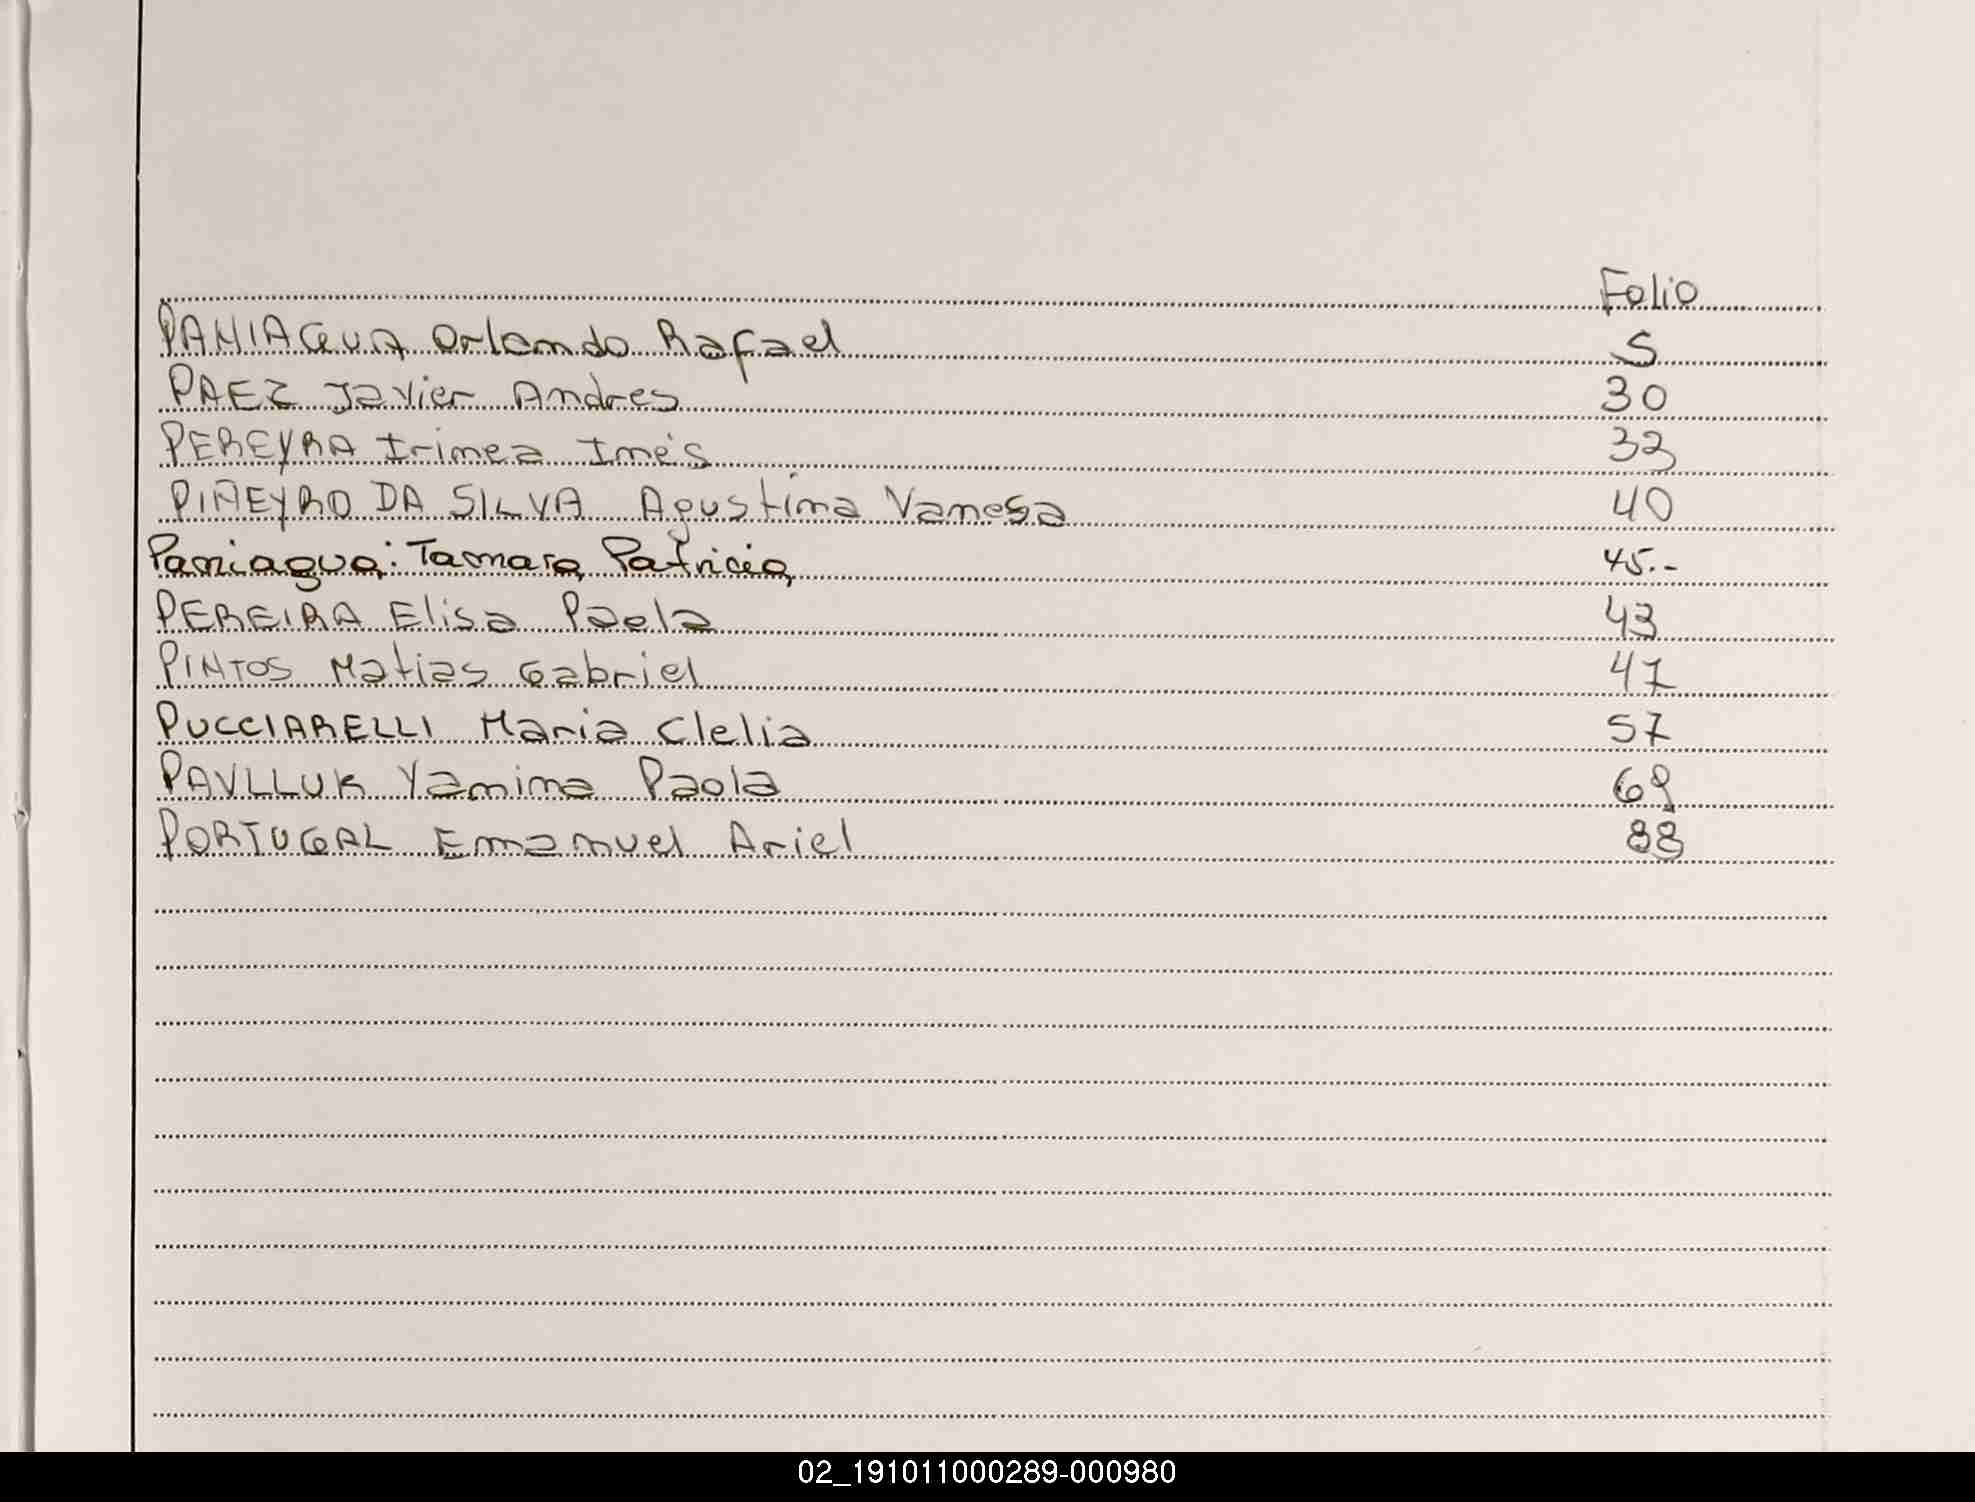 Folio
PANIAGUA Orlando Rafael 5
PAEZ Javier Andres 30
PEREYRA Irinea Inés 32
PIÑEYRO DA SILVA Agustina Vanesa 40
Paniagua: Tamara Patricia 45.-
PEREIRA Elisa Paola 43
PINTOS Matias Gabriel 47
PUCCIARELLI Maria Clelia 57
PAVLLUK Yamina Paola 69
PORTUGAL Emanuel Ariel 88
02_191011000289-000980